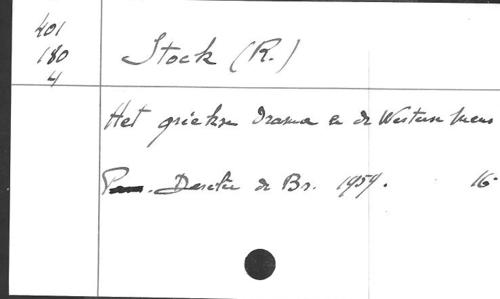 401
180
4
Stock (R.)
Het griekse Drama en de Westerse mens
Desclée de Br. 1959. 16-